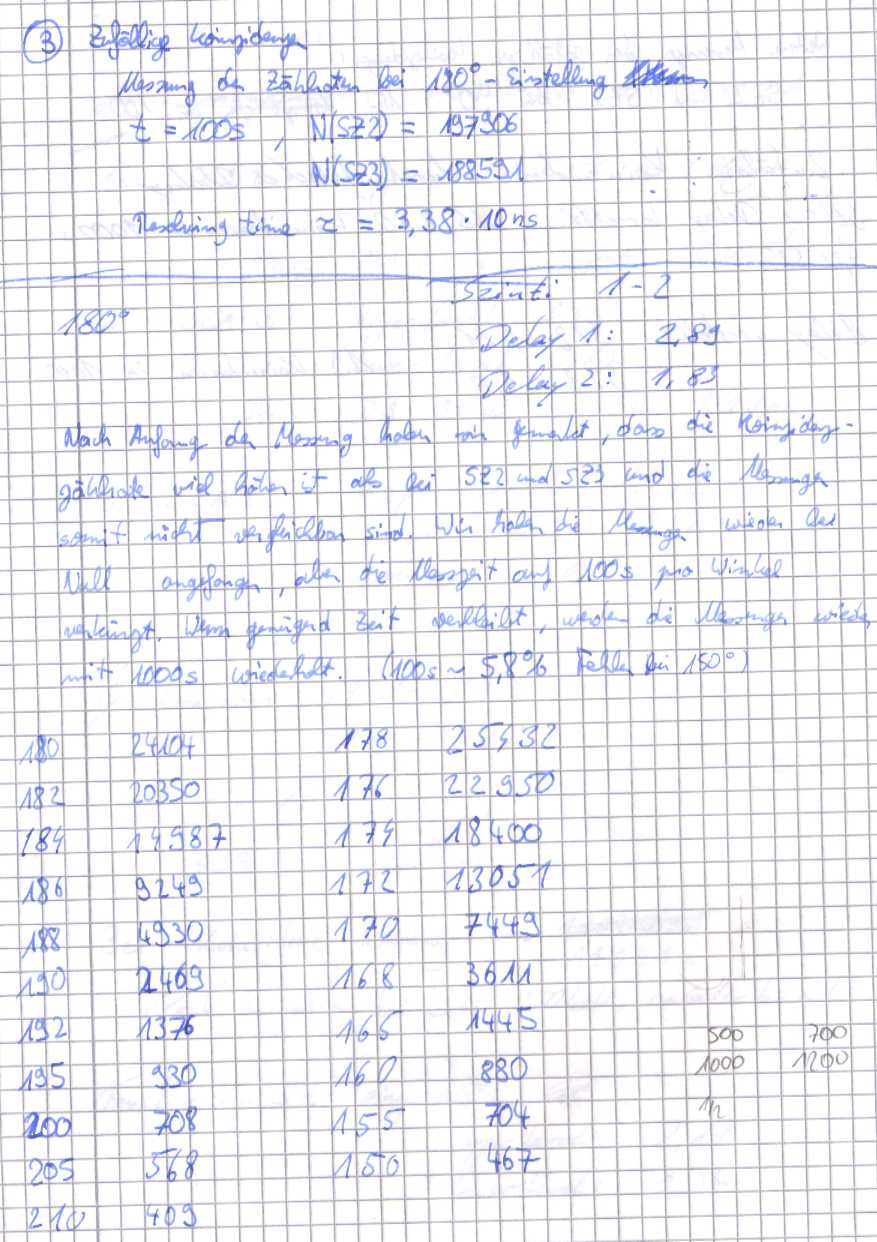 ③ Zufällige Koinzidenzen
Messung der Zählraten bei 180° - Einstellung
t = 100s , N(SZ2) = 197906
N(SZ3) = 188591
Resolving time τ = 3,38 · 10 ns
Szinti 1-2
180°
Delay 1: 2,89
Delay 2: 1,83
Nach Anfang der Messung haben wir gemerkt, dass die Koinzidenz-
zählrate viel höher ist als bei SZ2 und SZ3 und die Messungen
somit nicht vergleichbar sind. Wir haben die Messungen wieder bei
Null angefangen, aber die Messzeit auf 100s pro Winkel
verkürzt. Wenn genügend Zeit verbleibt, werden die Messungen wieder
mit 1000s wiederholt. (100s ~ 5,8% Fehler bei 150°)
180 24104 178 25432
182 20350 176 22950
184 14987 174 18400
186 9249 172 13051
188 4930 170 7449
190 2469 168 3611
192 1376 165 1445
500 700
195 930 160 880
1000 1200
200 708 155 704
1h
205 568 150 467
210 409